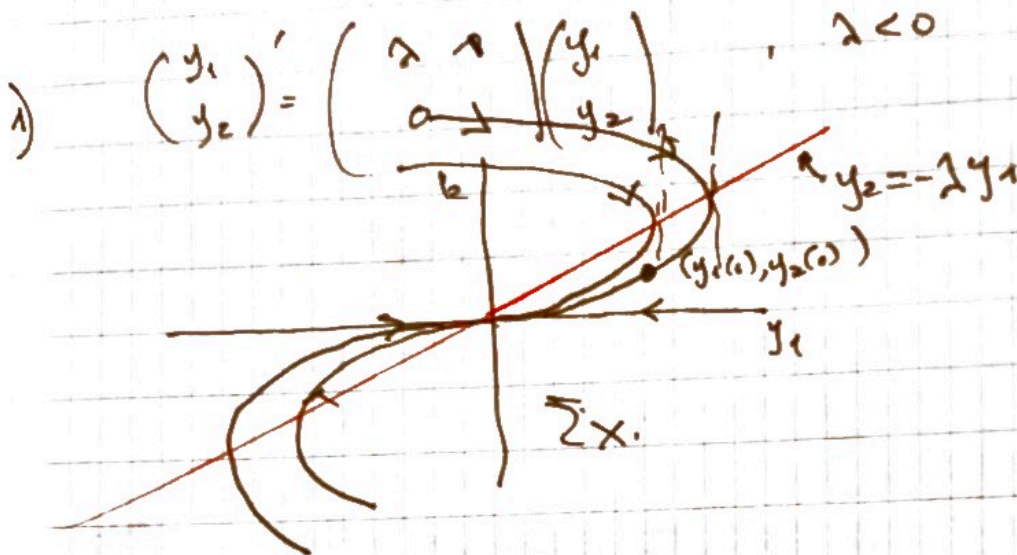 1) (y₁ y₂)' = (λ 1 0 λ) (y₁ y₂), λ < 0
y₂ = -λy₁
(y₁(0), y₂(0))
y₁
Σχ.